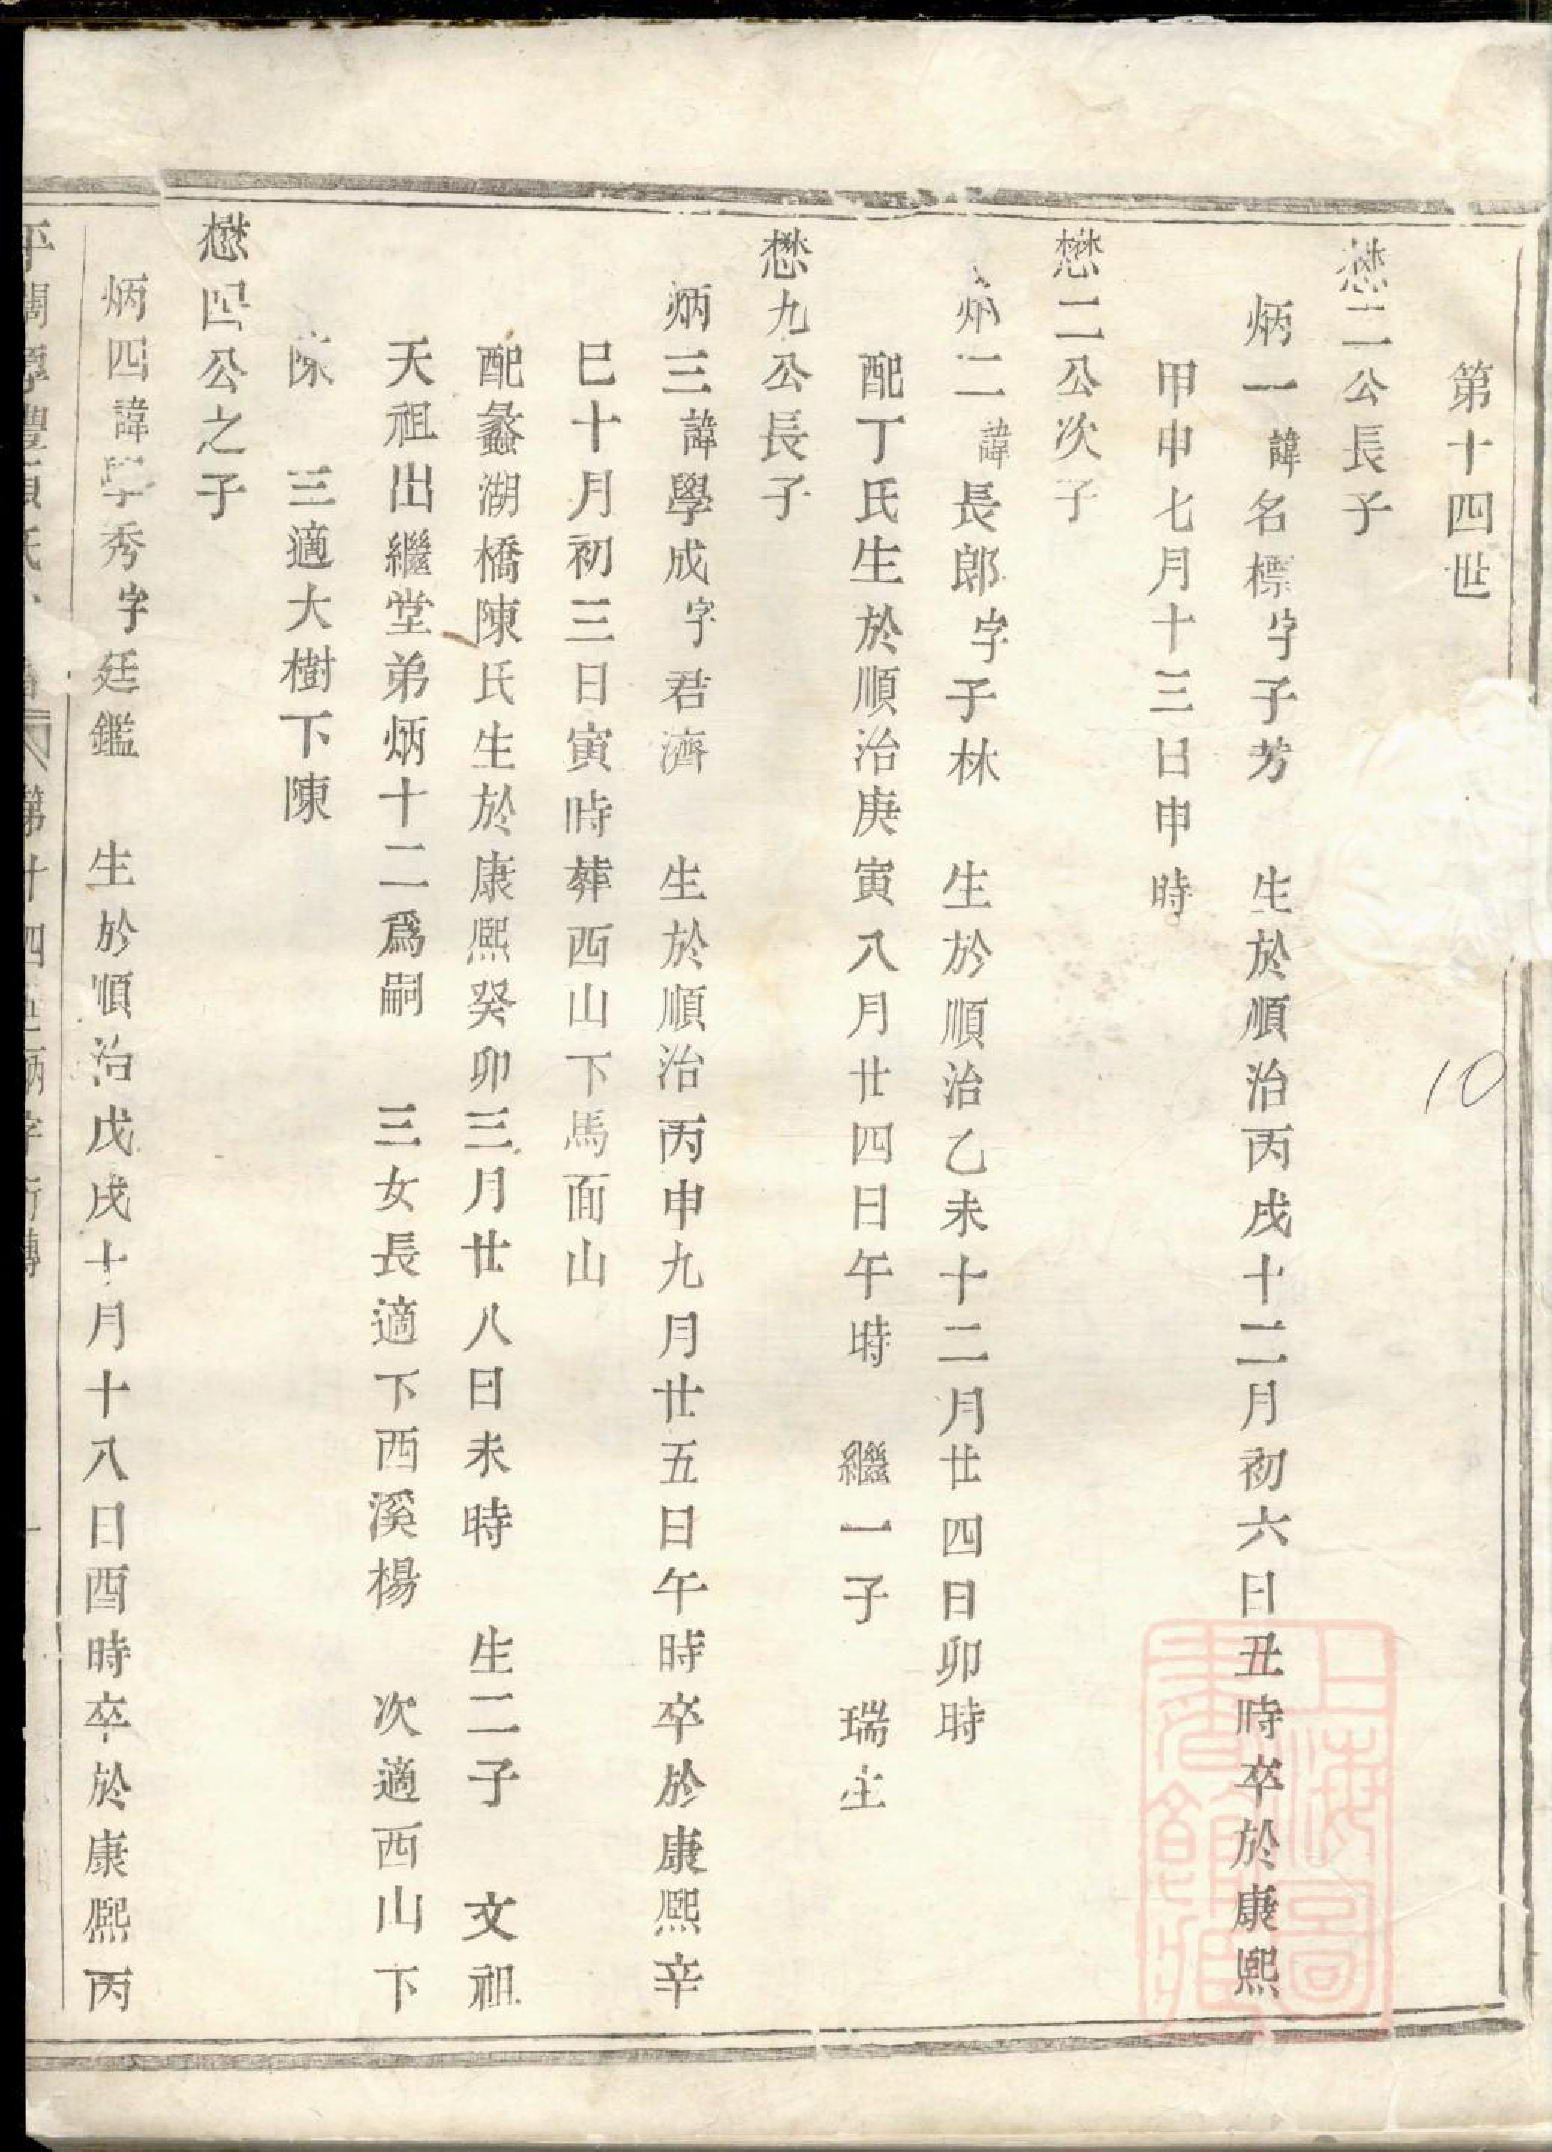 第十四世
懋二公長子
炳一諱名標字子芳 生於順治丙戌十二月初六日丑時卒於康熙
甲申七月十三日申時
懋二公次子
炳二諱長郎字子林 生於順治乙未十二月廿四日卯時
配丁氏生於順治庚寅八月廿四日午時 繼一子 瑞生
懋九公長子
炳三諱學成字君濟 生於順治丙申九月廿五日午時卒於康熙辛
巳十月初三日寅時葬西山下馬面山
配蠡湖橋陳氏生於康熙癸卯三月廿八日未時 生二子 文祖
天祖出繼堂弟炳十二爲嗣 三女長適下西溪楊 次適西山下
陳 三適大樹下陳
懋四公之子
炳四諱學秀字廷鑑 生於順治戊戌十月十八日酉時卒於康熙丙
第十四世炳字行傳
10
上海圖書館藏